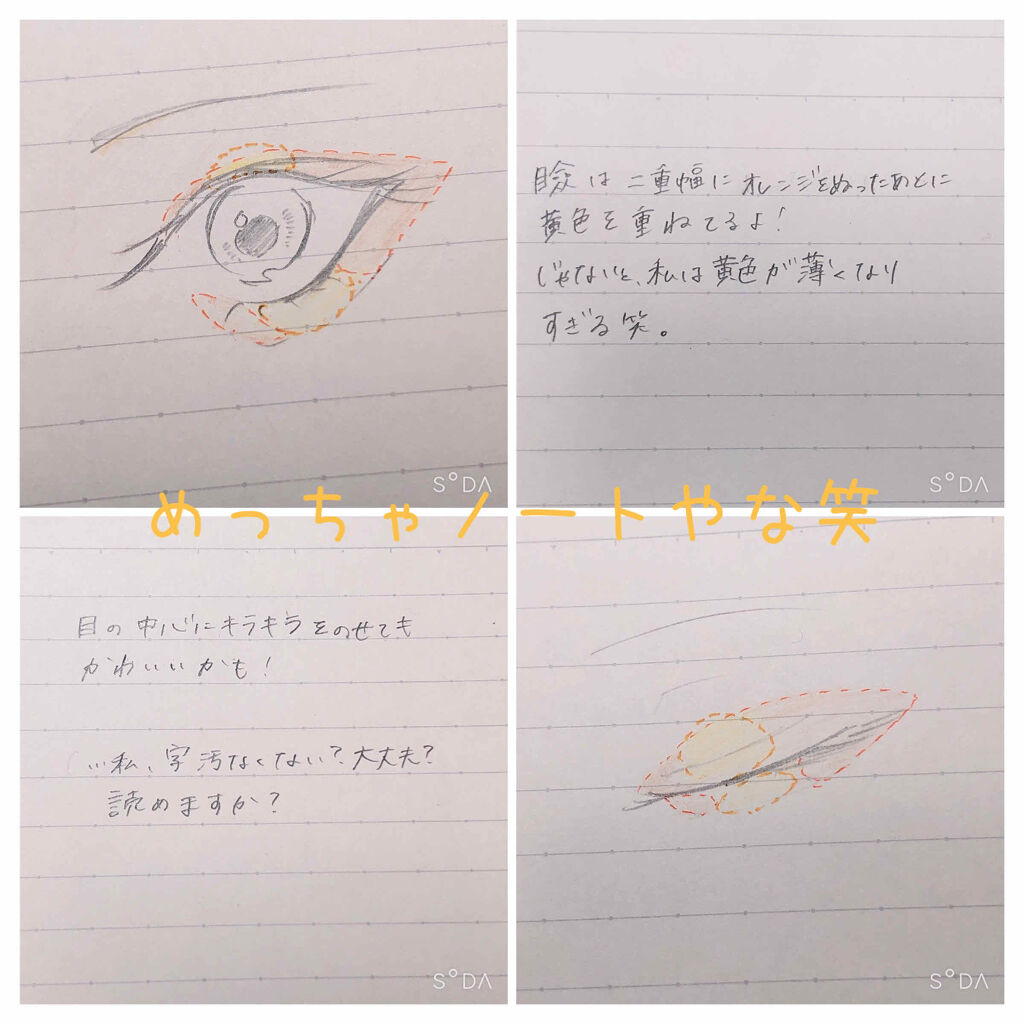 SODA
瞼は二重幅にオレンジをぬったあとに
黄色を重ねてるよ！
じゃないと、私は黄色が薄くなり
すぎる笑。
SODA
めっちゃノートやな笑
目の中心にキラキラをのせても
かわいいかも！
…私、字汚なくない？大丈夫？
読めますか？
SODA
SODA